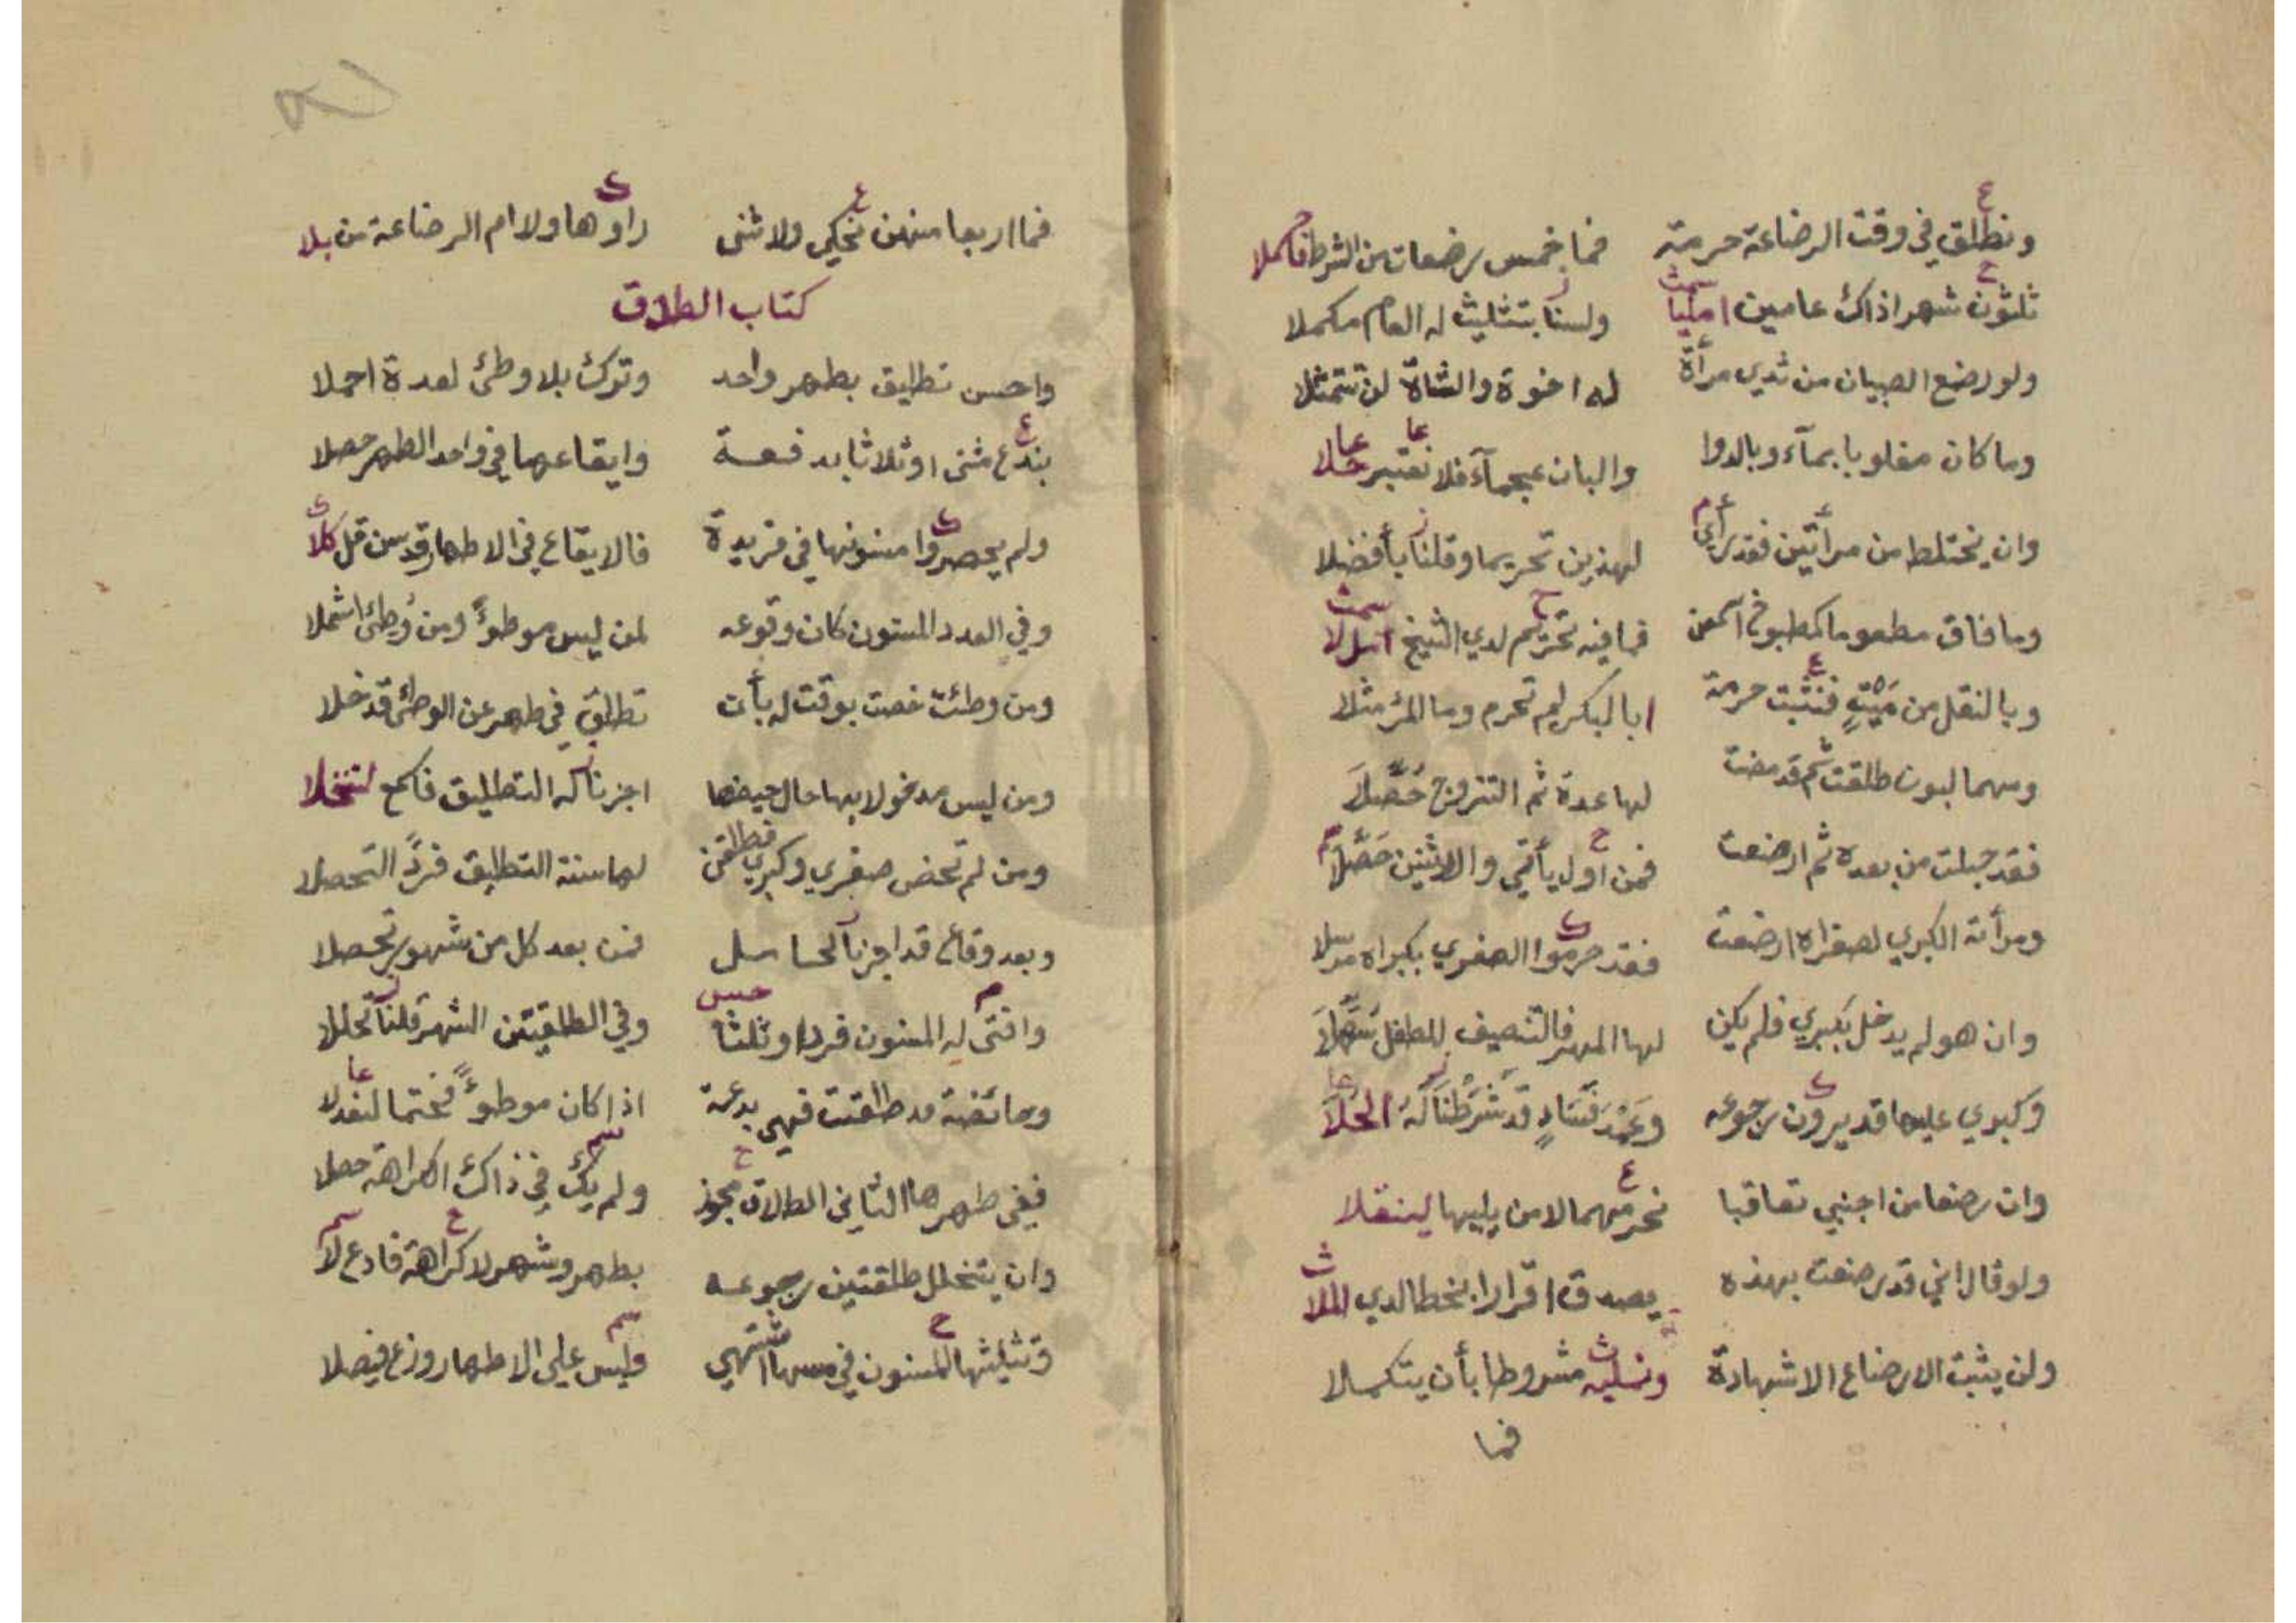 ونطلق في وقت الرضاعة حرمة فما خمس رضعات من الشرط فاكملا
ثلثون شهرا ذاك عامين امليا ولسنا بتثليث له العام مكملا
ولو رضع الصبيان من ثدي مرأة له اخوة والشاة لن تتمثلا
وما كان مغلوبا بماء وبالدوا والبان عجماء فلا نعتبر حلا
وان يختلط من مرأتين فقد رأي لهذين تحريما وقلنا بأفضلا
وما فاق مطعوما كمطبوخ امعن فما فيه تحريم لدي الشيخ
وبالنقل من ميت فنثبت حرمة ابا البكر لم تحرم وما المرؤ مثلا
ومهما لبون طلقت ثم قد مضت لها عدة ثم التزوج حصلا
فقد حبلت من بعده ثم ارضعت فمن اول يأتي والاثنين حصلا
ومرأته الكبري لصغراه ارضعت فقد حرموا الصغري بكبراه مرسلا
وان هو لم يدخل بكبري فلم يكن لها المهر فالتنصيف للطفل سهلا
وكبري عليها قد يرون رجوعه وعمد فساد قد شرطنا له الحلا
وان رضعا من اجنبي تعاقبا نحرمهما لا من يليها لينقلا
ولو قال اني قد رضعت بهذه يصدق اقرارا بخطا لدي الملا
ولن يثبت الارضاع الا شهادة ونمليه مشروطا بأن يتكملا
فما
فما اربعا منهن نحكي ولا ثنى راوها ولا ام الرضاعة من بلا
كتاب الطلاق
واحسن تطليق بطهر واحد وترك بلا وطئ لعدة اجملا
بندع مثنى او ثلاثا بدفعة وايقاعها في واحد الطهر حصلا
ولم يحصروا مسنونها في فريدة فالايقاع في الاطهار قد سن قل كلا
وفي العدد المسنون كان وقوعه لمن ليس موطوءً ومن وطئ اشملا
ومن وطئت خصت بوقت له بأن تطلق في طهر عن الوطئ قد خلا
ومن ليس مدخولا بها حال حيضها اجزنا له التطليق فاكمع لتنخلا
ومن لم تحض صغري وكبري فطلقن لها سنة التطليق فردً التحصلا
وبعد وقاع قد اجزنا لحاسل فمن بعد كل من شهور تحصلا
وافتى له المسنون فردا وثلثا وفي الطلقتين الشهر قلنا تحللا
وحائضة مد طلقت فهي بدعة اذا كان موطوءً فختما لنعدلا
ففي طهرها الثاني الطلاق مجوز ولم يك في ذاك الكراهة حصلا
وان يتخلل طلقتين رجوعه بطهر وشهر لا كراهة فادع لا
وتثليثها المسنون في مسها اشتهي وليس علي الاطهار وزع فيصلا